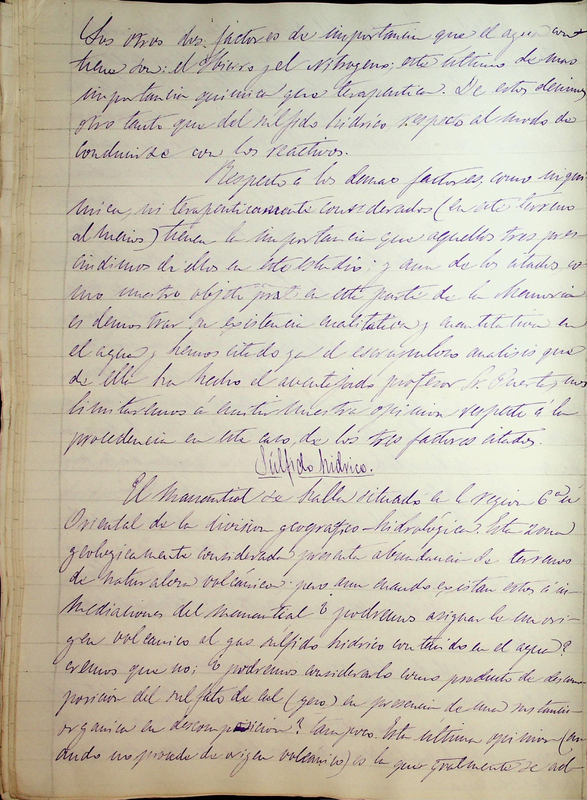 Los otros dos factores de importancia que el agua con
tiene son: el hierro y el nitrogeno; este último de mas
importancia quimica que terapeutica. De estos decimos
otro tanto que del sulfido hidrico respecto al modo de
conducirse con los reactivos.
Respecto á los demas factores, como ni qui
mica, ni terapeuticamente considerados (en este terreno
al menos) tienen la importancia que aquellos tres pres
cindimos de ellos en este estudio; y aun de los citados co
mo nuestro objeto en esta parte de la Memoria
es demostrar su existencia cualitativa y cuantitativa en
el agua, y hemos citado ya el escrupuloso analisis que
de ella ha hecho el aventajado profesor Sr. Puerta, nos
limitaremos á emitir nuestra opinion respecto á la
procedencia en este caso, de los tres factores citados.
Súlfido hidrico.
El manantial se halla situado en la region 6ª ú
Oriental de la division geografico-hidrológica. Esta zona
geologicamente considerada presenta abundancia de terrenos
de naturaleza volcanica: pero aun cuando existan estos á in
mediaciones del manantial ¿ podremos asignar un ori
gen volcanico al gas sulfido hidrico contenido en el agua?
creemos que no; ¿ podremos considerarlo como producto de descom
posición del sulfato de cal (yeso) en presencia de una sustancia
organica en descomposicion? tampoco. Esta última opinion (cu
ando no procede de origen volcanico) es la que gralmente se ad